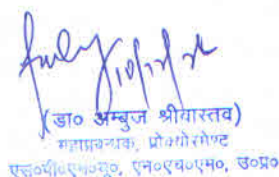 (डा० अम्बुज श्रीवास्तव)
महाप्रबन्धक, प्रोक्योरमेण्ट
एस०पी०एम०यू०, एन०एच०एम०, उ०प्र०